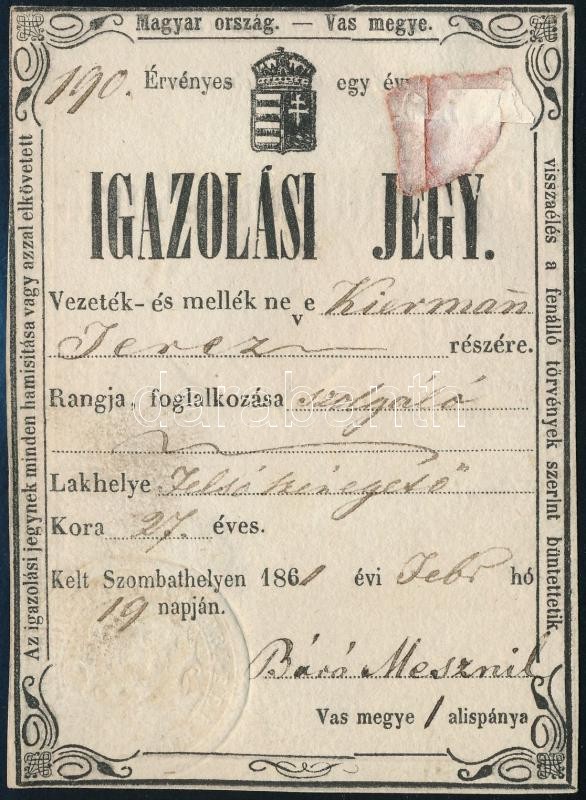 Magyar ország. — Vas megye.
190. Érvényes egy év
IGAZOLÁSI JEGY.
Vezeték- és mellék ne v e Kiermann
Terez részére.
Rangja, foglalkozása szolgáló
Lakhelye
Kora 27. éves.
Kelt Szombathelyen 1861 évi Febr hó
19 napján.
Báró Mesznil
Vas megye 1 alispánya
Az igazolási jegynek minden hamisítása vagy azzal elkövetett
visszaélés a fenálló törvények szerint büntettetik.
darabanth.com